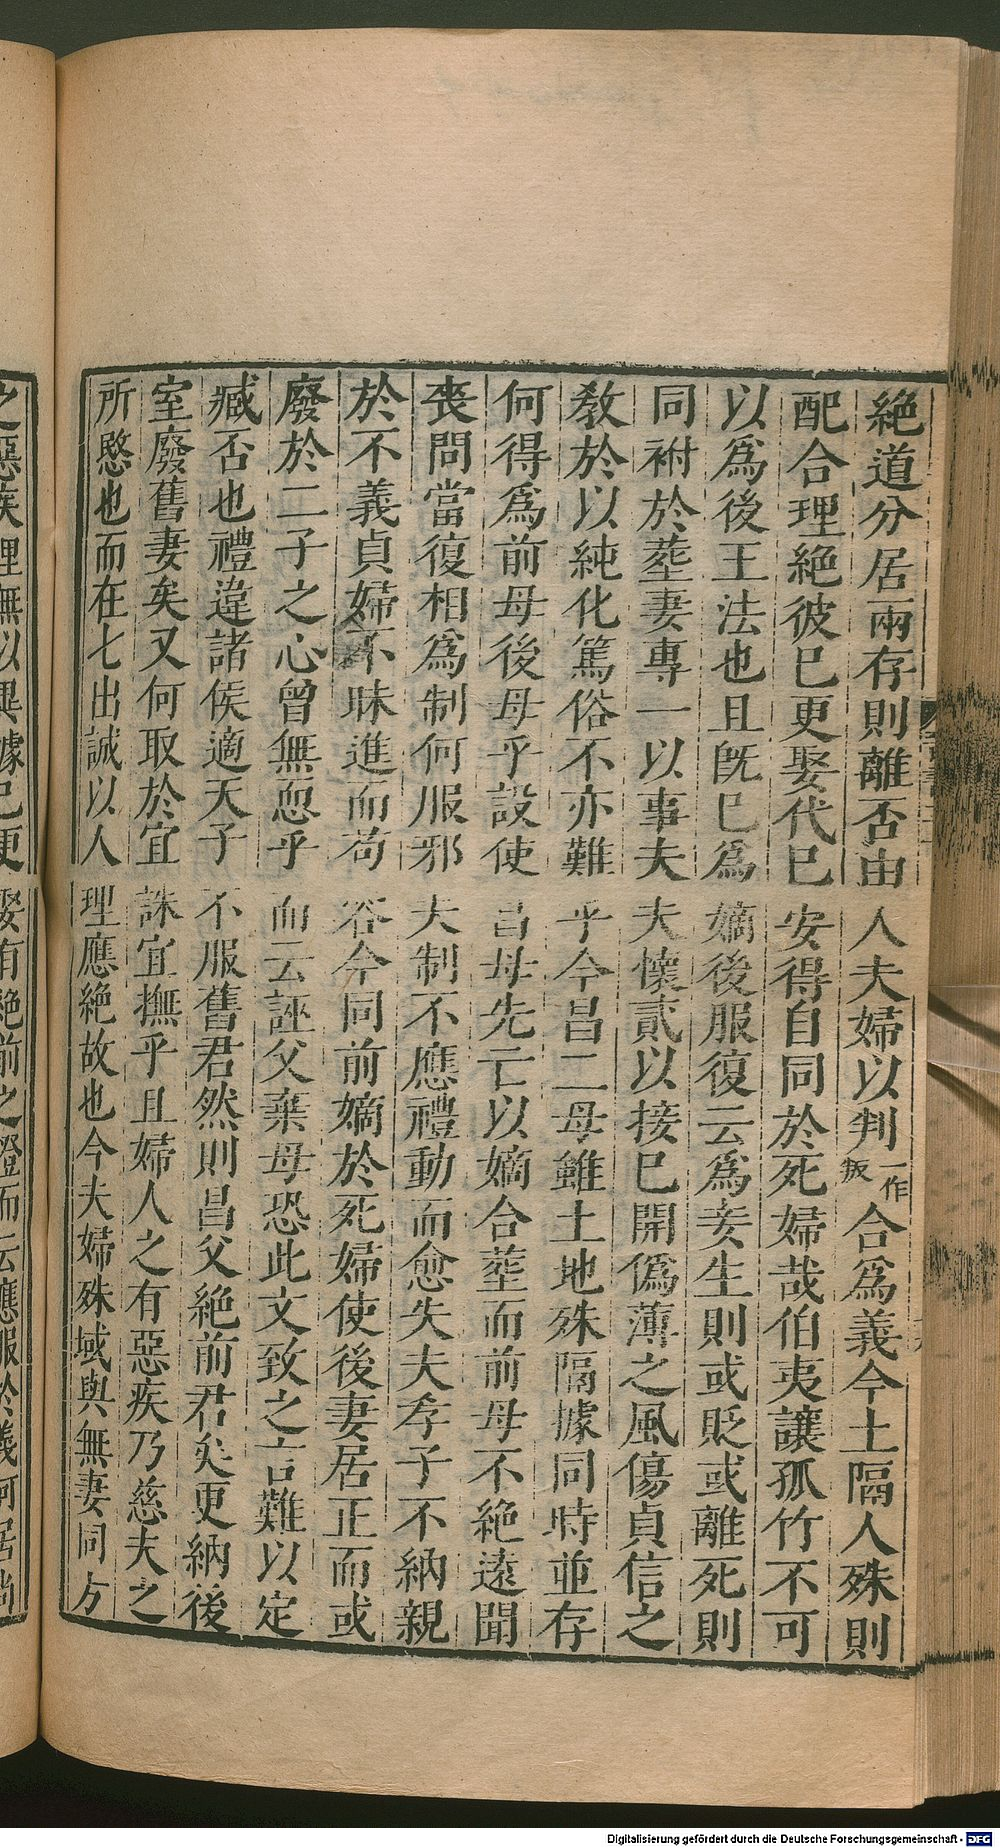 絶道分居兩存則離否由人夫婦以判一作叛合爲義今土隔人殊則
配合理絶彼已更娶代已安得自同於死婦哉伯夷讓孤竹不可
以爲後王法也且既已爲嫡後服復云爲妾生則或貶或離死則
同祔於葬妻專一以事夫夫懷貳以接已開僞薄之風傷貞信之
教於以純化篤俗不亦難乎今昌二母雖土地殊隔據同時並存
何得爲前母後母乎設使昌母先亡以嫡合葬而前母不絶遠聞
喪問當復相爲制何服邪夫制不應禮動而愈失夫孝子不納親
於不義貞婦不昧進而苟容今同前嫡於死婦使後妻居正而或
廢於二子之心曾無恧乎而云誣父棄母恐此文致之言難以定
臧否也禮違諸侯適天子不服舊君然則昌父絶前君矣更納後
室廢舊妻矣又何取於宜誅宜撫乎且婦人之有惡疾乃慈夫之
所愍也而在七出誠以人理應絶故也今夫婦殊域與無妻同方
之惡疾理無以異據已更娶有絶前之證而云應服於義何居尚
Digitalisierung gefördert durch die Deutsche Forschungsgemeinschaft - DFG